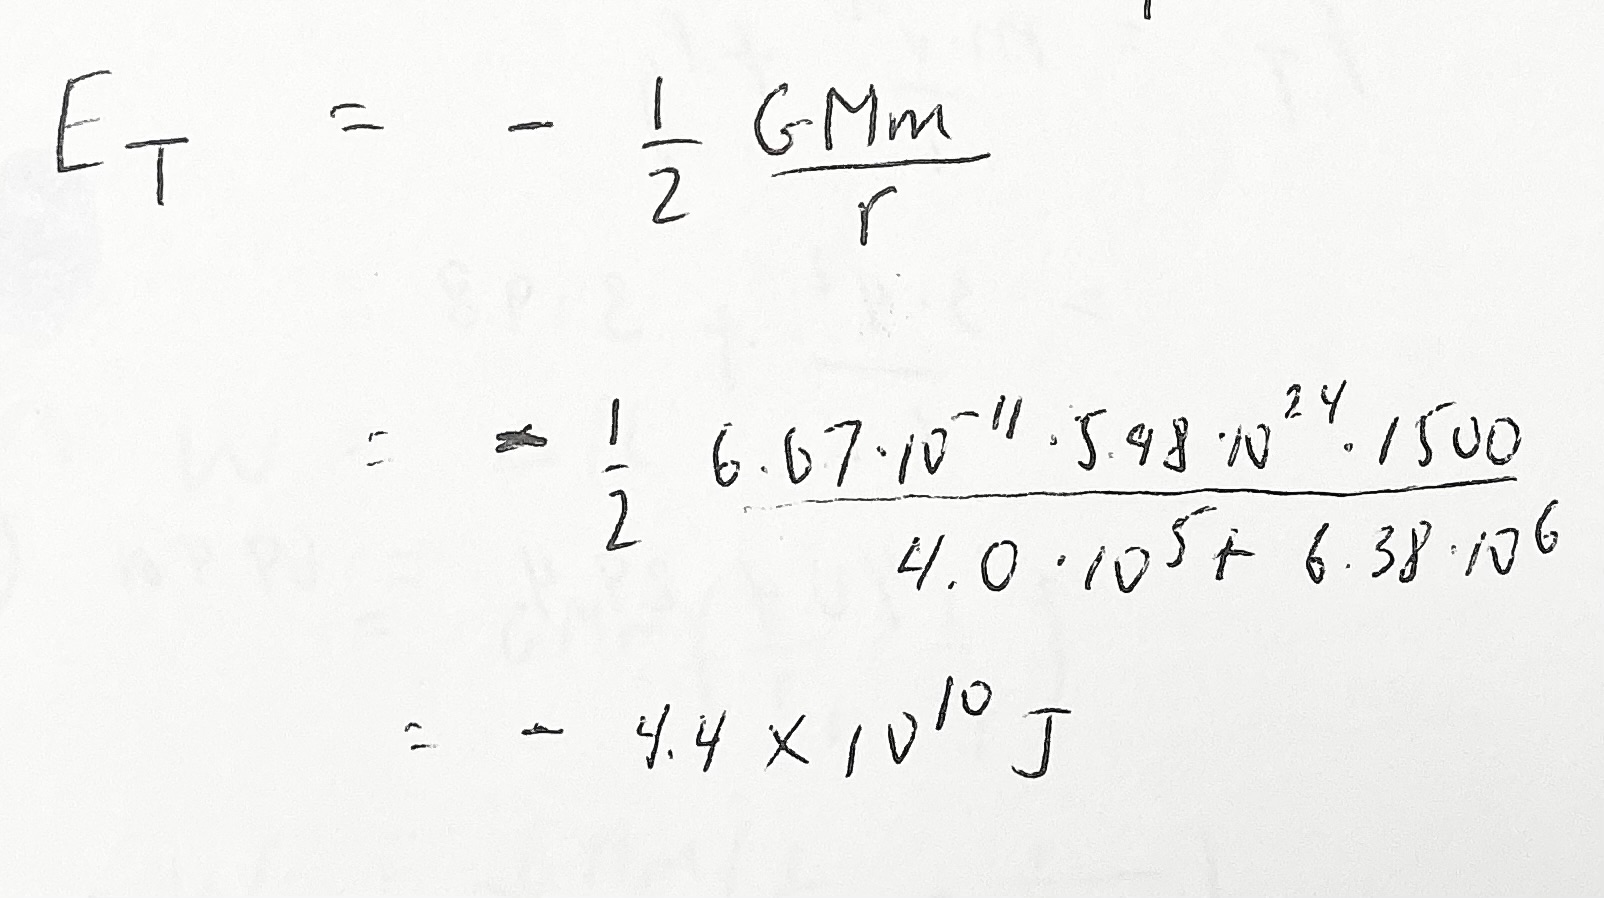 E_T = - 1/2 GMm/r
= - 1/2 6.67·10^-11·5.98·10^24·1500/4.0·10^5+6.38·10^6
= - 4.4 × 10^10 J